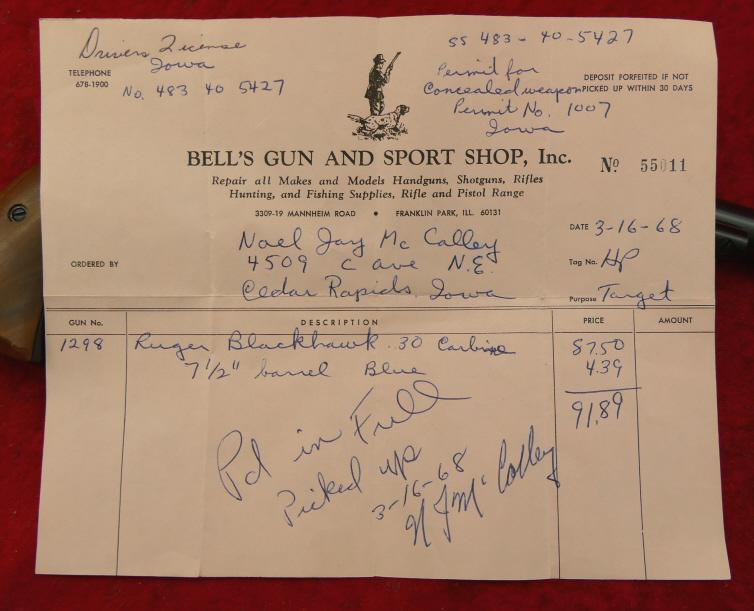 Drivers License
Iowa
No. 483 40 5427
TELEPHONE
678-1900
SS 483-40-5427
Permit for
Concealed weapon
Permit No. 1007
Iowa
DEPOSIT FORFEITED IF NOT
PICKED UP WITHIN 30 DAYS
BELL'S GUN AND SPORT SHOP, Inc.
No 55011
Repair all Makes and Models Handguns, Shotguns, Rifles
Hunting, and Fishing Supplies, Rifle and Pistol Range
3309-19 MANNHEIM ROAD • FRANKLIN PARK, ILL. 60131
DATE 3-16-68
ORDERED BY
Noel Jay McCalley
4509 C ave N.E.
Cedar Rapids, Iowa
Tag No. HP
Purpose Target
GUN No. DESCRIPTION PRICE AMOUNT
1298 Ruger Blackhawk .30 Carbine 87.50
7 1/2" barrel Blue 4.39
91.89
Pd in Full
Picked up
3-16-68
N J McCalley